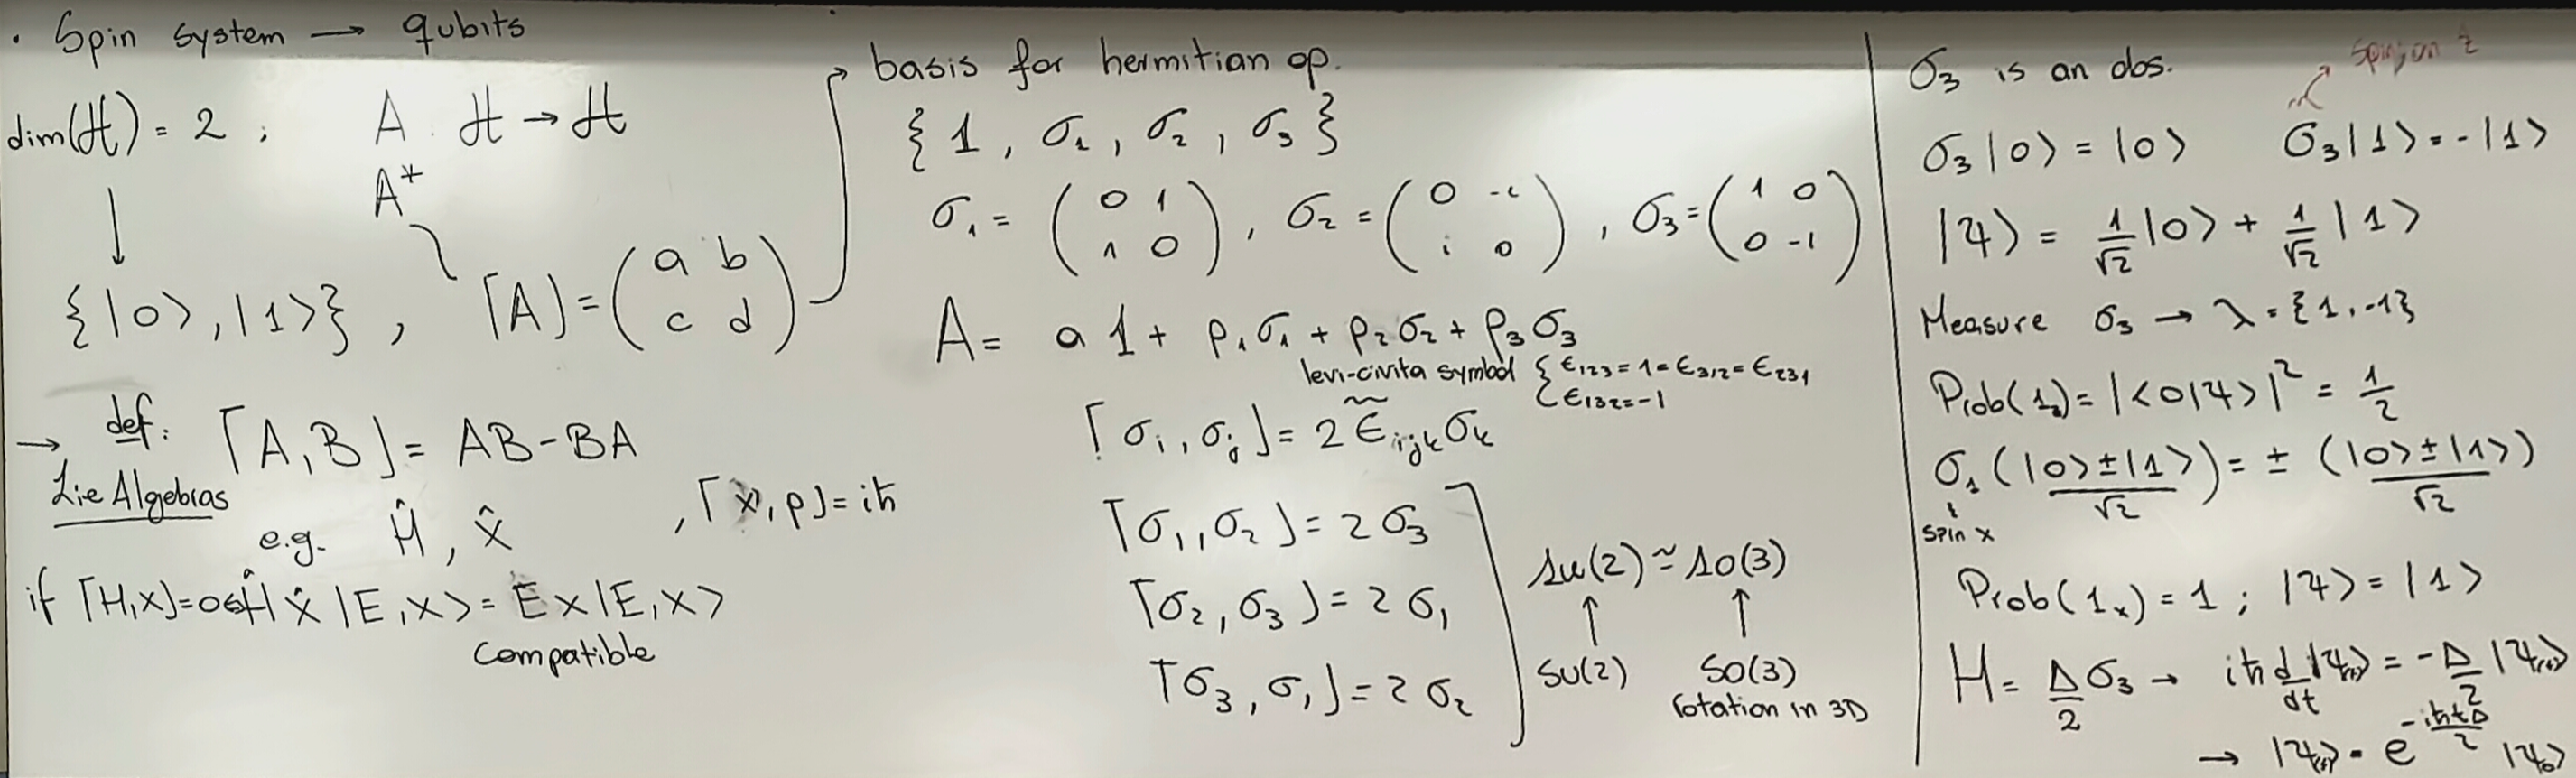 · Spin system → qubits
dim(ℋ) = 2 ; A : ℋ → ℋ
A⁺
↓
{|0>, |1>} , [A] = (a b
c d)
→ def: [A, B] = AB - BA
Lie Algebras
e.g. Ĥ, x̂ , [x, p] = iħ
if [H,X]=0 Ĥ x̂ |E,x> = E x |E,x>
Compatible
basis for hermitian op.
{1, σ₁, σ₂, σ₃}
σ₁ = (0 1
1 0) , σ₂ = (0 -i
i 0) , σ₃ = (1 0
0 -1)
A = a 1 + p₁σ₁ + p₂σ₂ + p₃σ₃
levi-civita symbol { ε₁₂₃ = 1 = ε₃₁₂ = ε₂₃₁
ε₁₃₂ = -1
[σᵢ, σⱼ] = 2 ε̃ᵢⱼₖ σₖ
[σ₁, σ₂] = 2 σ₃
[σ₂, σ₃] = 2 σ₁
[σ₃, σ₁] = 2 σ₂
su(2) ≃ so(3)
↑ ↑
SU(2) SO(3)
rotation in 3D
σ₃ is an obs.
spin on z
σ₃|0> = |0> σ₃|1> = -|1>
|ψ> = 1/√2 |0> + 1/√2 |1>
Measure σ₃ → λ = {1, -1}
Prob(1z) = |<0|ψ>|² = 1/2
σ₁ (|0> ± |1>)/√2 = ± (|0> ± |1>)/√2
spin x
Prob(1ₓ) = 1 ; |ψ> = |1>
H = Δ/2 σ₃ → iħ d/dt |ψ(t)> = -Δ/2 |ψ(t)>
→ |ψ(t)> = e^(-iħtΔ/2) |ψ₀>